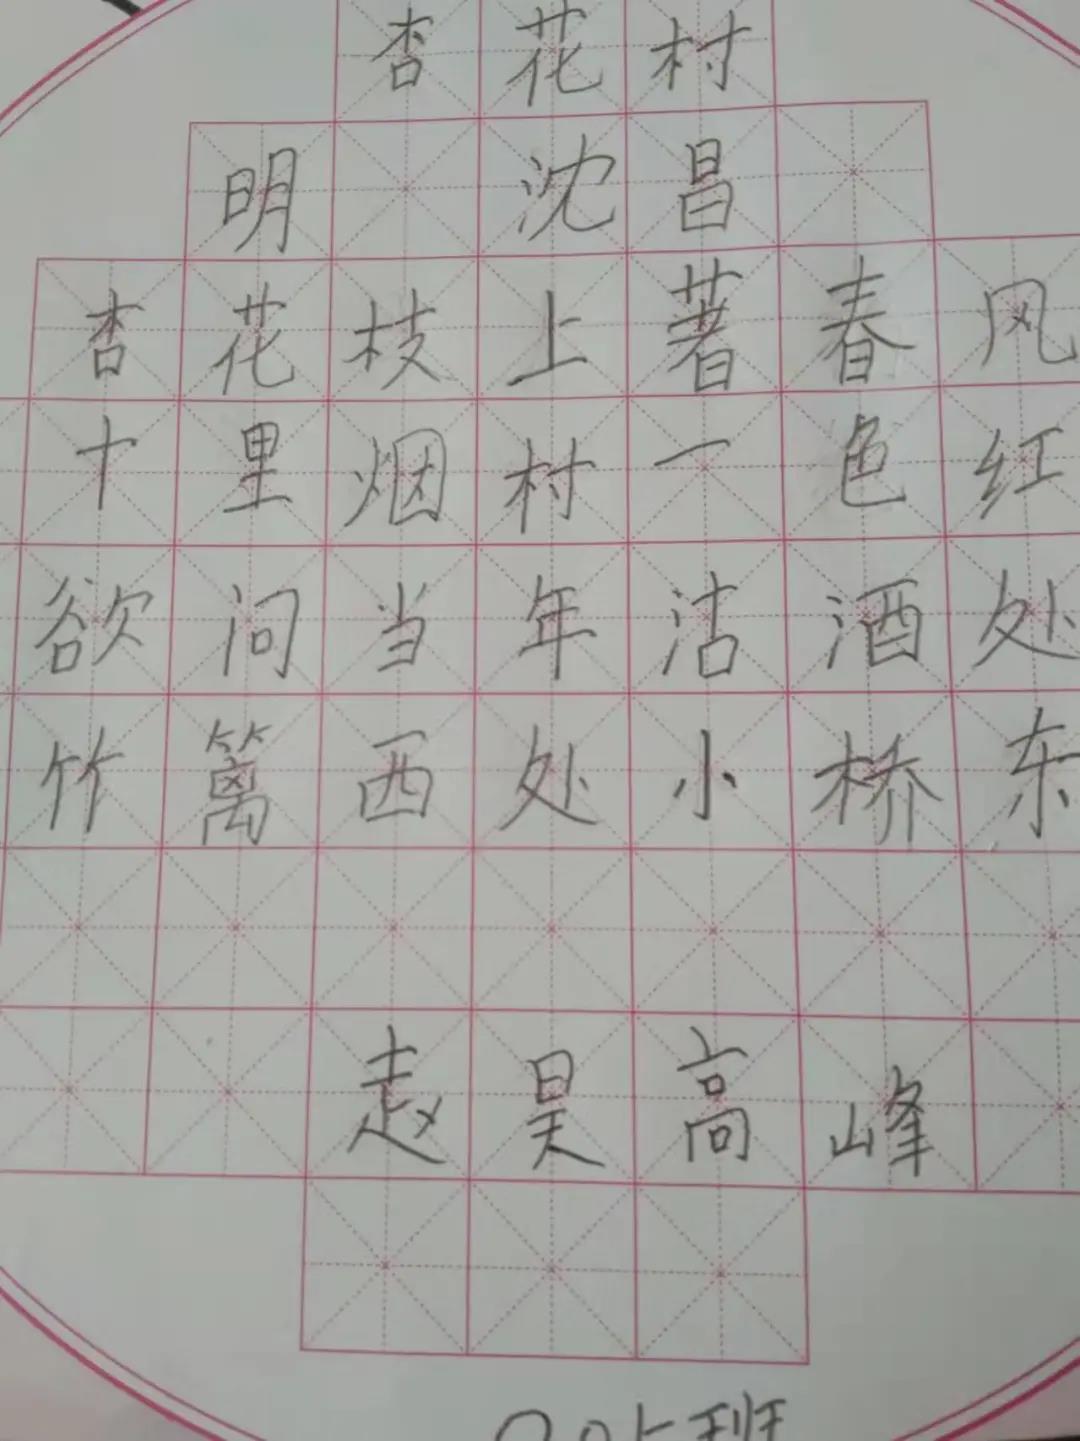 杏花村
明 沈昌
杏花枝上著春风
十里烟村一色红
欲问当年沽酒处
竹篱西处小桥东
赵昊高峰
班